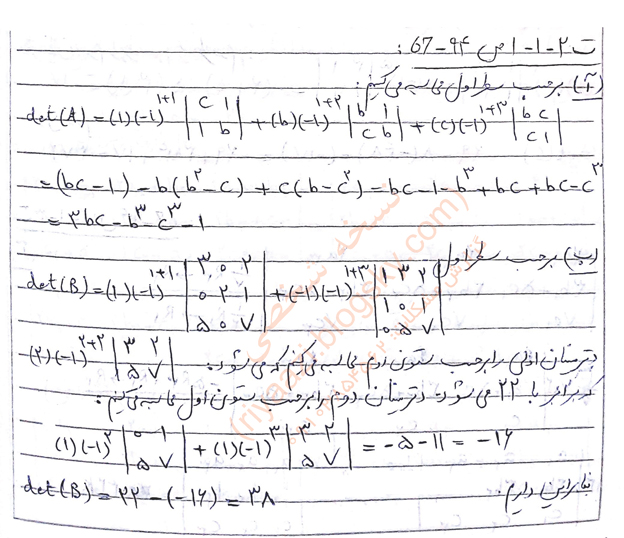 ت ۲-۱-۱ ص ۹۴-67:
آ) برحسب سطر اول محاسبه می‌کنیم:
det(A) = (1)(-1)^{1+1} |c 1; 1 b| + (b)(-1)^{1+۲} |b 1; c b| + (c)(-1)^{1+۳} |b c; c 1|
= (bc-1) - b(b^۲-c) + c(b-c^۲) = bc-1-b^۳+bc+bc-c^۳
= ۳bc-b^۳-c^۳-1
ب) برحسب سطر اول
det(B) = (1)(-1)^{1+1} |۳ ۰ ۲; ۰ ۲ ۱; ۵ ۰ ۷| + (-1)(-1)^{1+۳} |۱ ۳ ۲; ۱ ۰ ۱; ۰ ۵ ۷|
دترمینان اولی را برحسب ستون دوم محاسبه می‌کنیم که می شود: (۲)(-1)^{۲+۲} |۳ ۲; ۵ ۷|
که برابر با ۲۲ می شود. دترمینان دوم را برحسب ستون اول محاسبه می‌کنیم:
(1)(-1)^۲ |۰ ۱; ۵ ۷| + (1)(-1)^۳ |۳ ۲; ۵ ۷| = -۵-۱۱ = -۱۶
بنابراین داریم: det(B) = ۲۲-(-۱۶) = ۳۸
نسخه شخصی
(riyazi.blogsky.com)